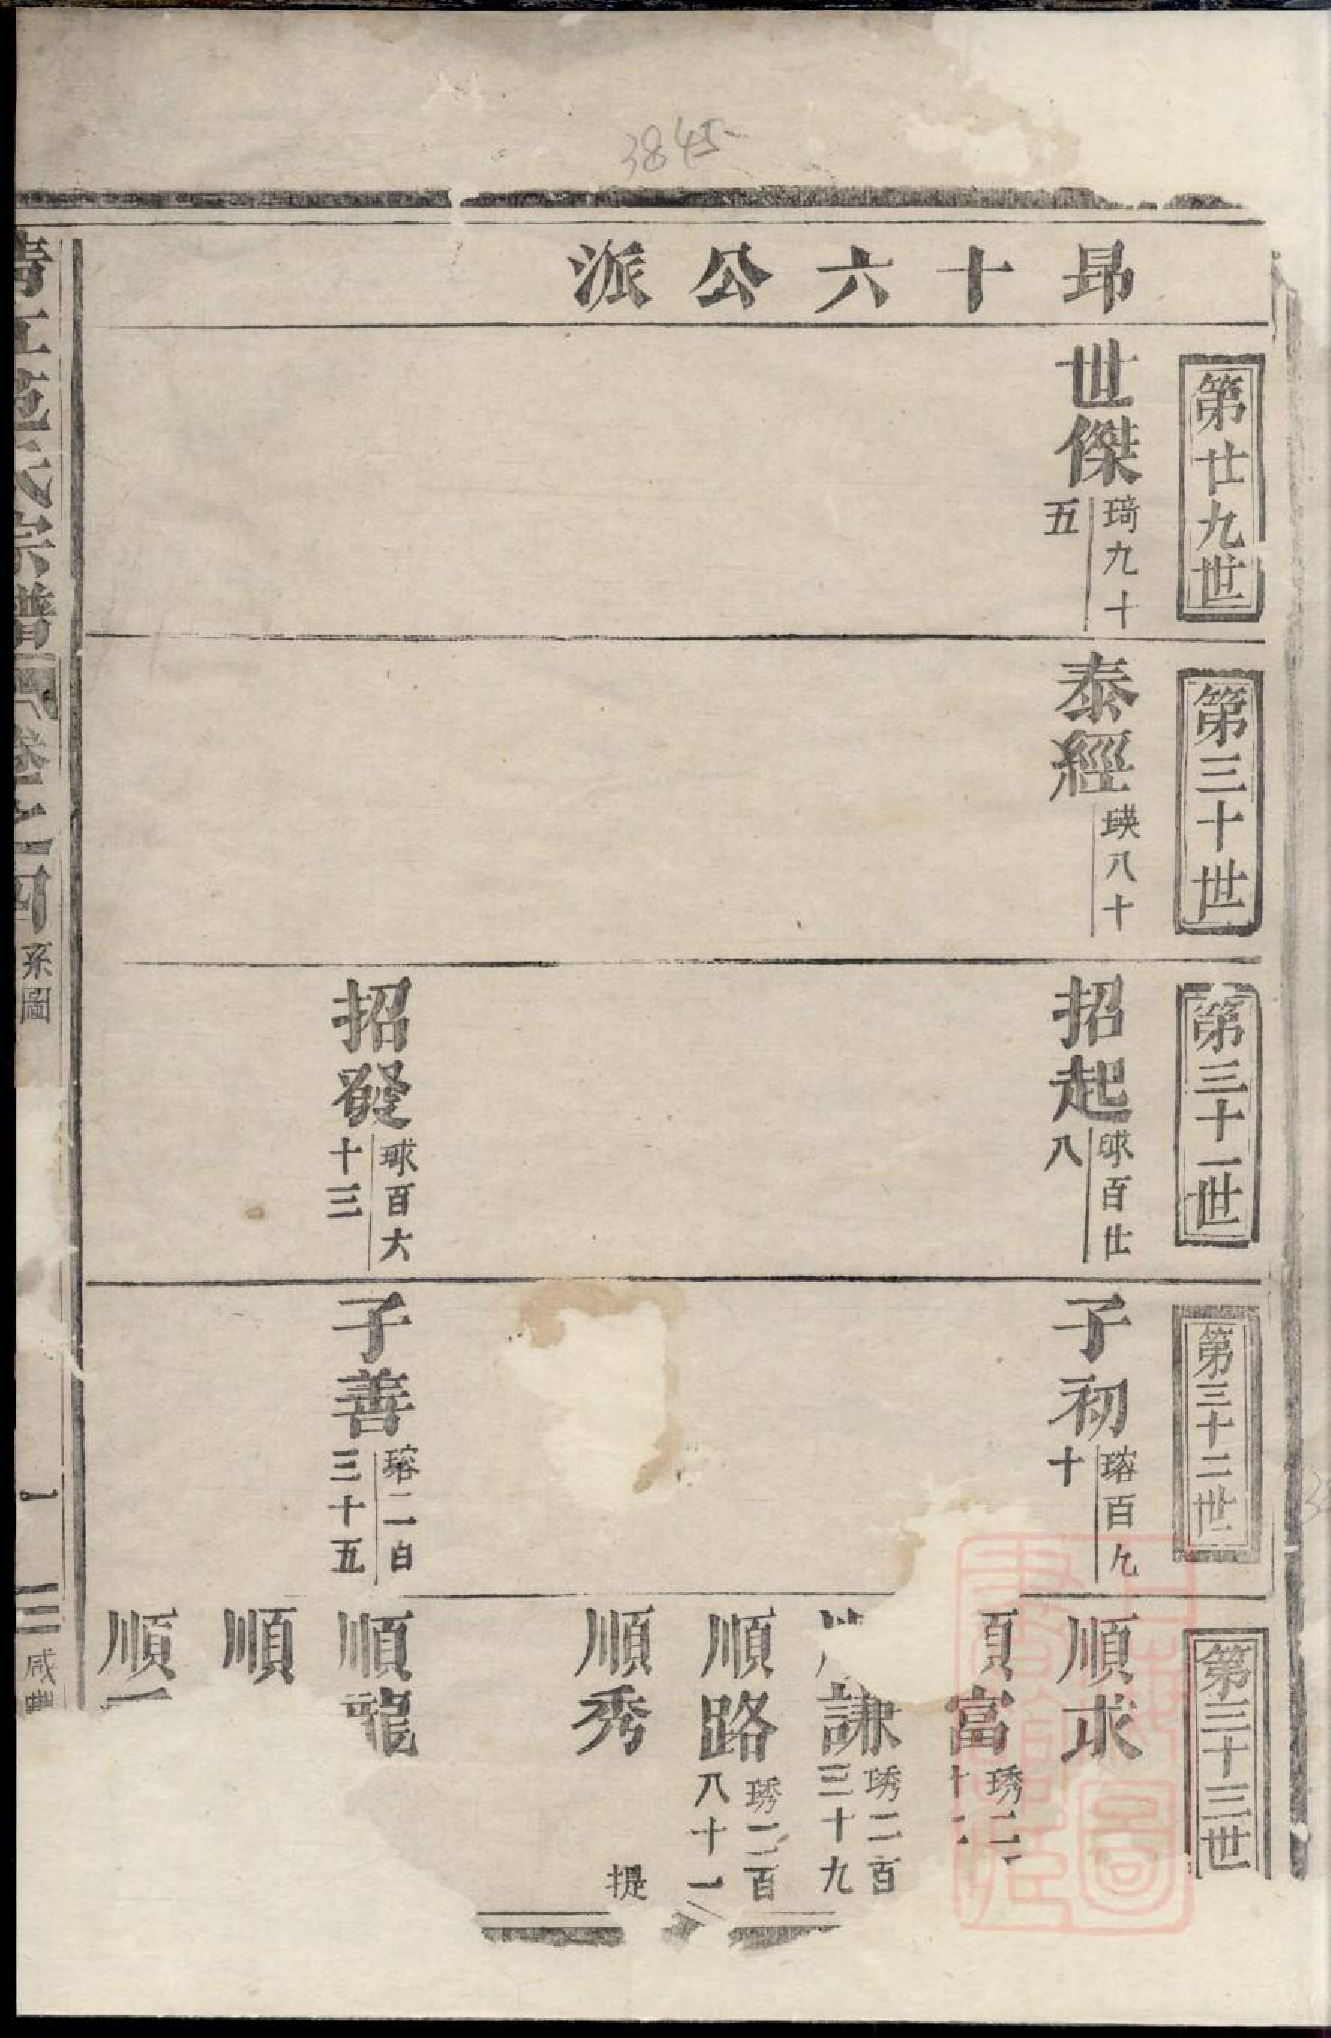 3845
昂十六公派
第廿九世
世傑
琦九十
五
第三十世
泰經
瑛八十
第三十一世
招起
球百廿
八
招發
球百六
十三
第三十二世
子初
瑢百九
十
子善
瑢二百
三十五
第三十三世
順求
富
琇二
十二
謙
琇二百
三十九
順路
琇二百
八十一
順秀
提
順龍
順
順
宗譜
卷之四
系圖